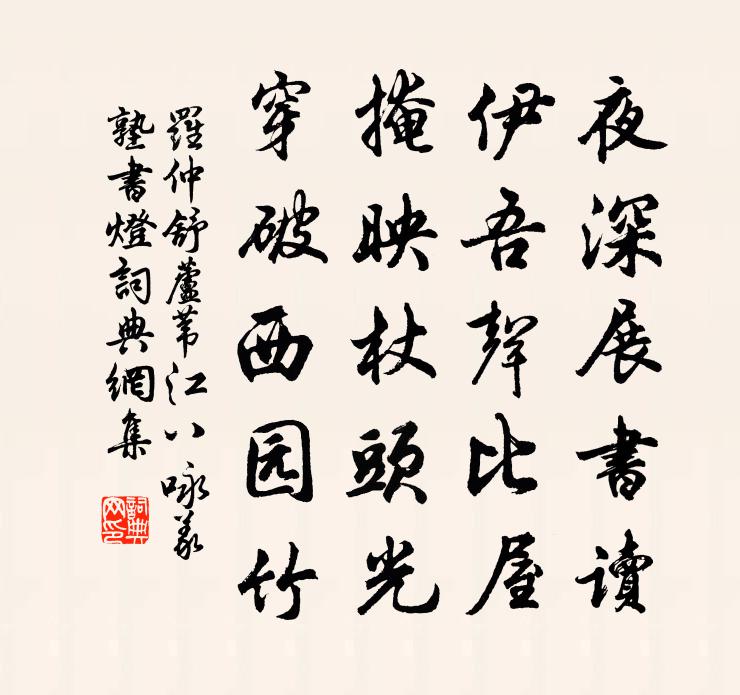 夜深展書讀
伊吾聲比屋
掩映杖頭光
穿破西园竹
羅仲舒蘆葦江八咏義
塾書燈詞典網集
詞典網印